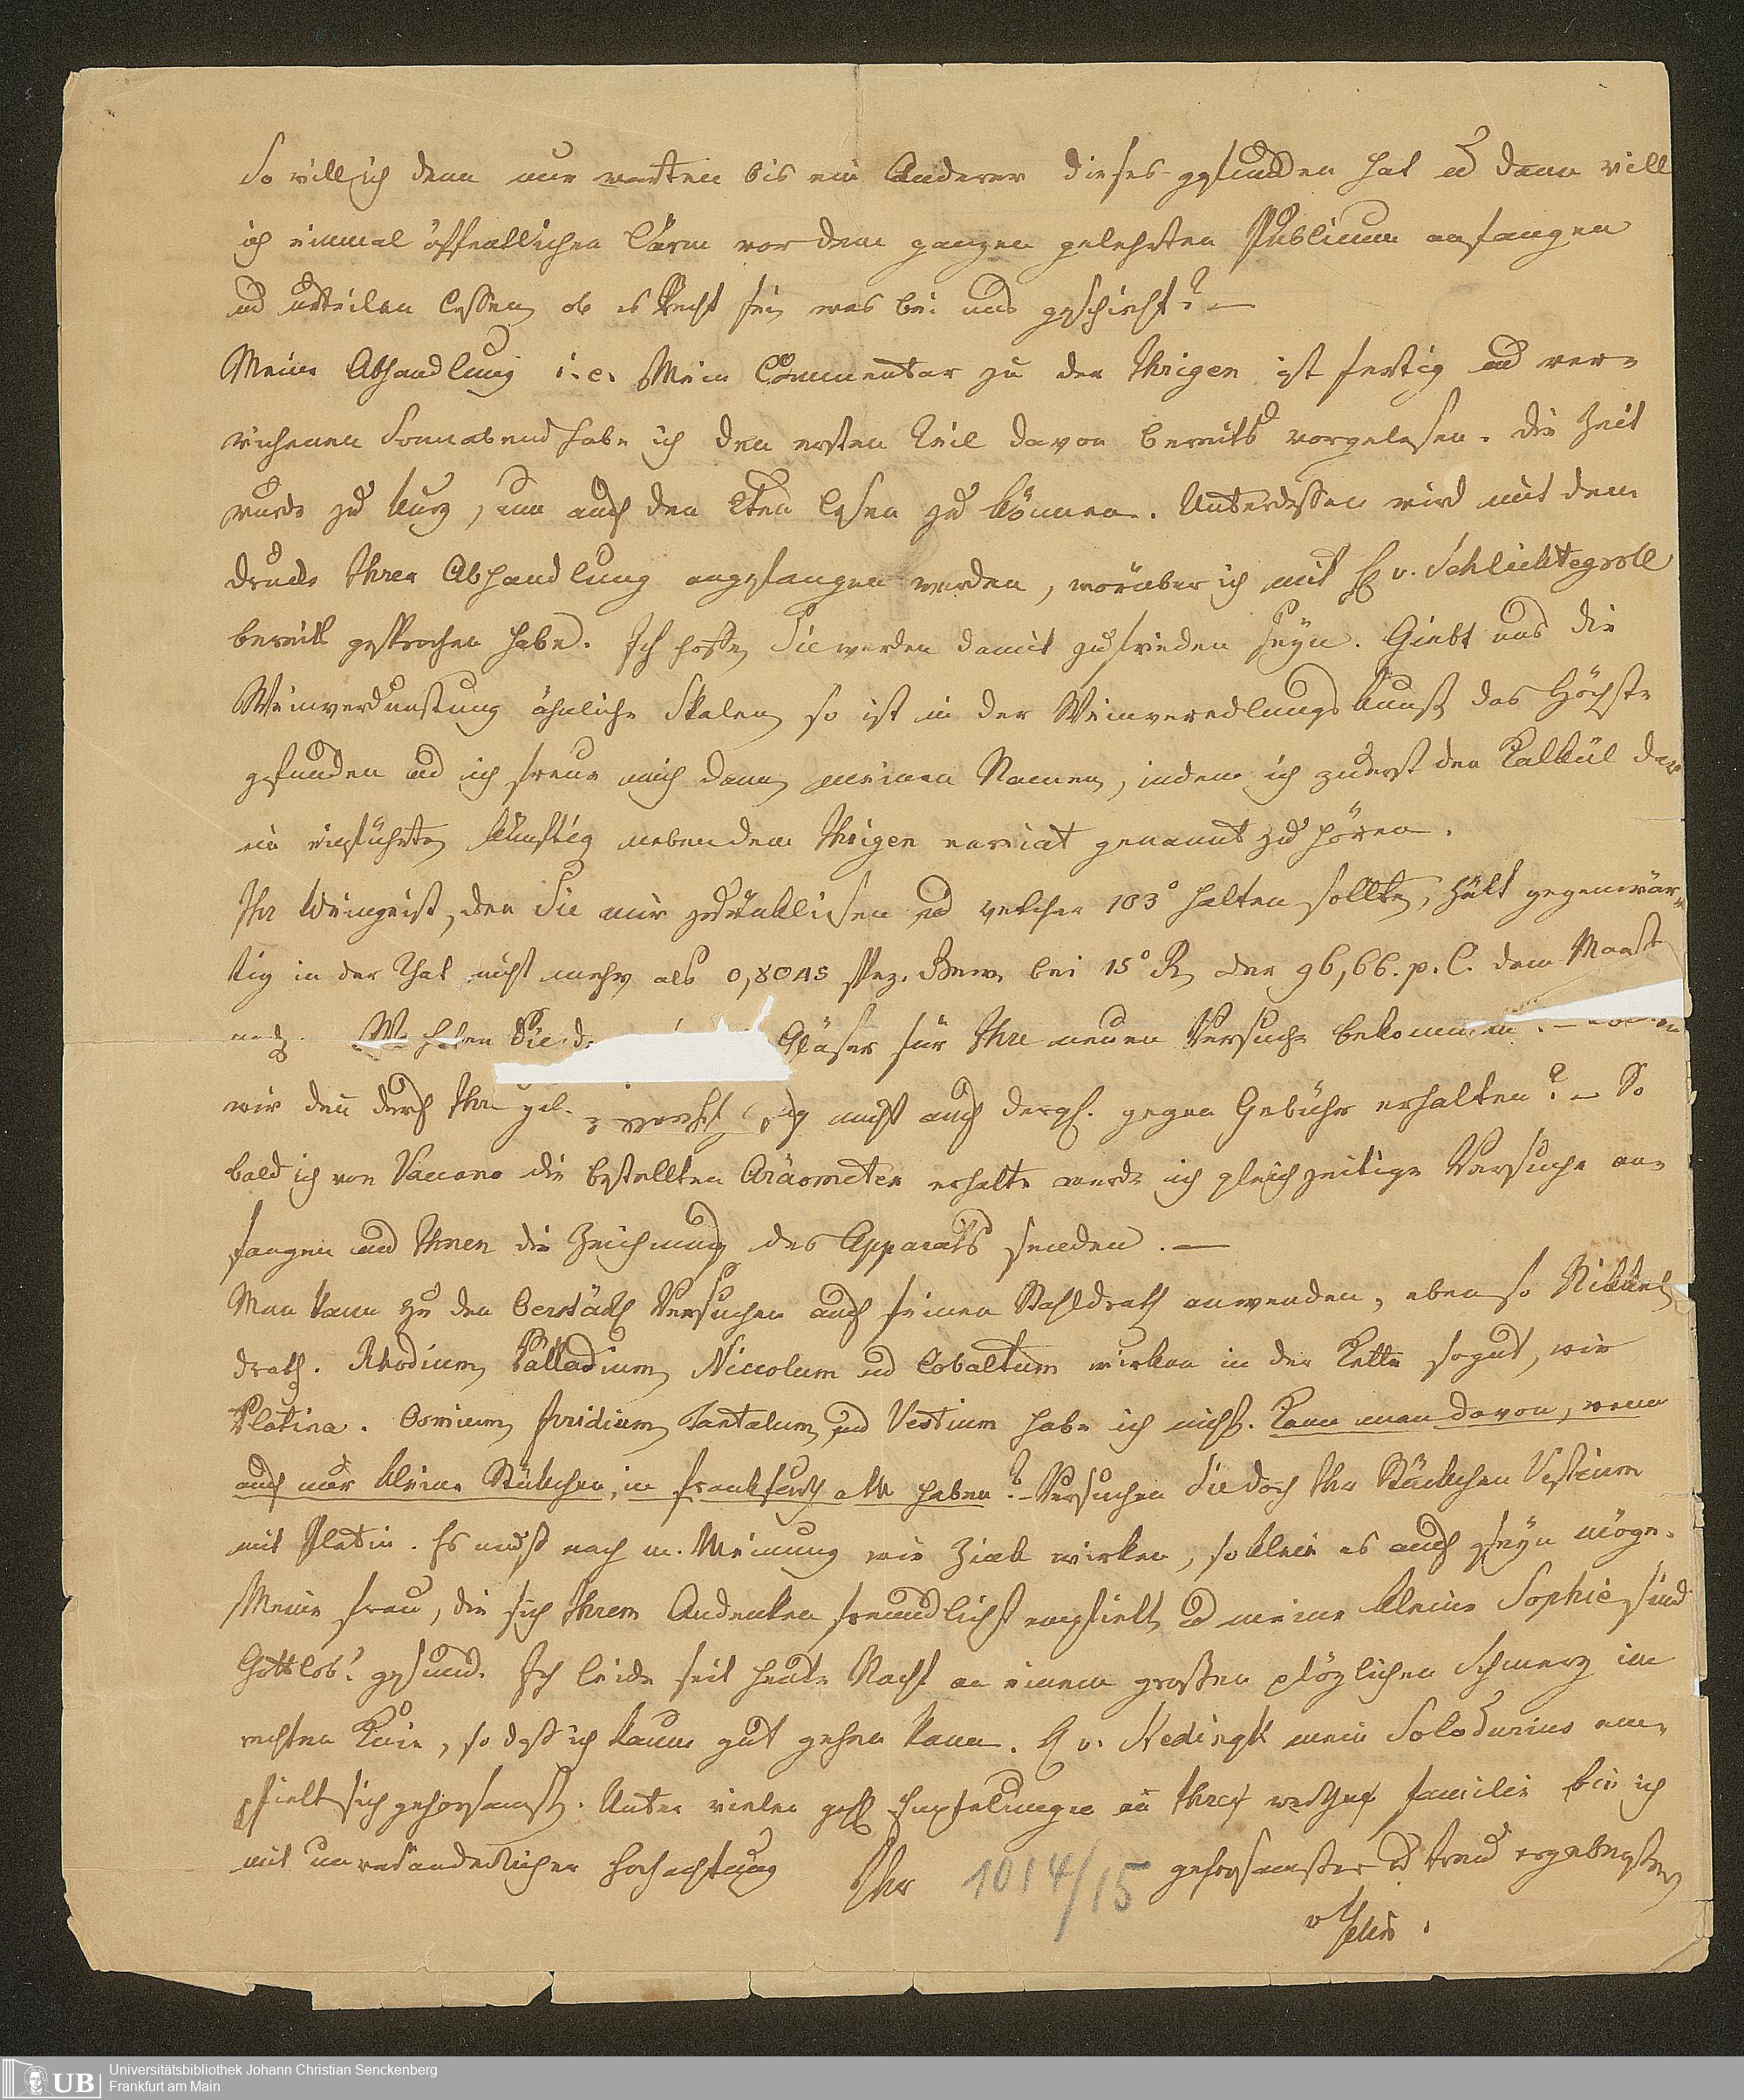 So will ich denn nur warten bis ein Anderer dieses gefunden hat und dann will
ich einmal öffentlichen Lärm vor dem ganzen gelehrten Publicum anfangen
und urteilen lassen, ob es Recht sei, was bei uns geschieht? —
Meine Abhandlung i. e. Mein Commentar zu der Ihrigen ist fertig und ver-
wichenen Sonnabend habe ich den ersten Teil davon bereits vorgelesen. Die Zeit
wurde zu kurz, um auch den 2ten lesen zu können. Unterdessen wird mit dem
Drucke Ihrer Abhandlung angefangen werden, worüber ich mit H v. Schlichtegroll
bereits gesprochen habe. Ich hoffe, Sie werden damit zufrieden seyn. Giebt uns die
Weinverdunstung ähnliche Skalen, so ist in der Weinveredlungskunst das Höchste
gefunden und ich freue mich dann, meinen Namen, indem ich zuerst den Kalkül dar
ein einführte, künftig neben dem Ihrigen genannt zu hören.
Ihr Weingeist, den Sie mir zurückliesen und welcher 103° halten sollte, hält gegenwär-
tig in der That nicht mehr als 0,8045 spez. Gew. bei 15° R, oder 96,66. p. C. dem Maase
nach. Wo haben Sie d Gläser für Ihre neuen Versuche bekommen. —
wir den durch Ihre gel. nicht auch dergl. gegen Gebühr erhalten? — So
bald ich von Vaccano die bestellten Aräometer erhalte werde ich gleichzeitige Versuche an-
fangen und Ihnen die Zeichnung des Apparats senden. —
Man kann zu den Oerstädt Versuchen auch feinen Stahldrath anwenden, eben so Nikkel
drath. Rhodium, Palladium, Niccolum und Cobaltum wirken in der Kette so gut, wie
Platina. Osmium, Iridium, Tantalum, und Vestium habe ich nicht. Kann man davon, wenn
auch nur kleine Stükchen, in Frankfurth a M haben? — Versuchen Sie doch Ihr Stückchen Vestium
mit Platin. Es muß nach m. Meinung wie Zink wirken, so klein es auch seyn möge.
Meine Frau, die sich Ihrem Andenken freundlichst empfielt, und meine kleine Sophie sind
Gottlob! gesund. Ich leide seit heute Nacht an einem großen plözlichen Schmerz im
rechten Knie, so daß ich kaum gut gehen kann. H v. Nedingk mein Solodurius em-
pfielt sich gehorsamst. Unter vielen Empfelungen an Ihre werthe Familie bin ich
mit unveränderlicher Hochachtung Ihr 1014/15 gehorsamster und treu ergebenster